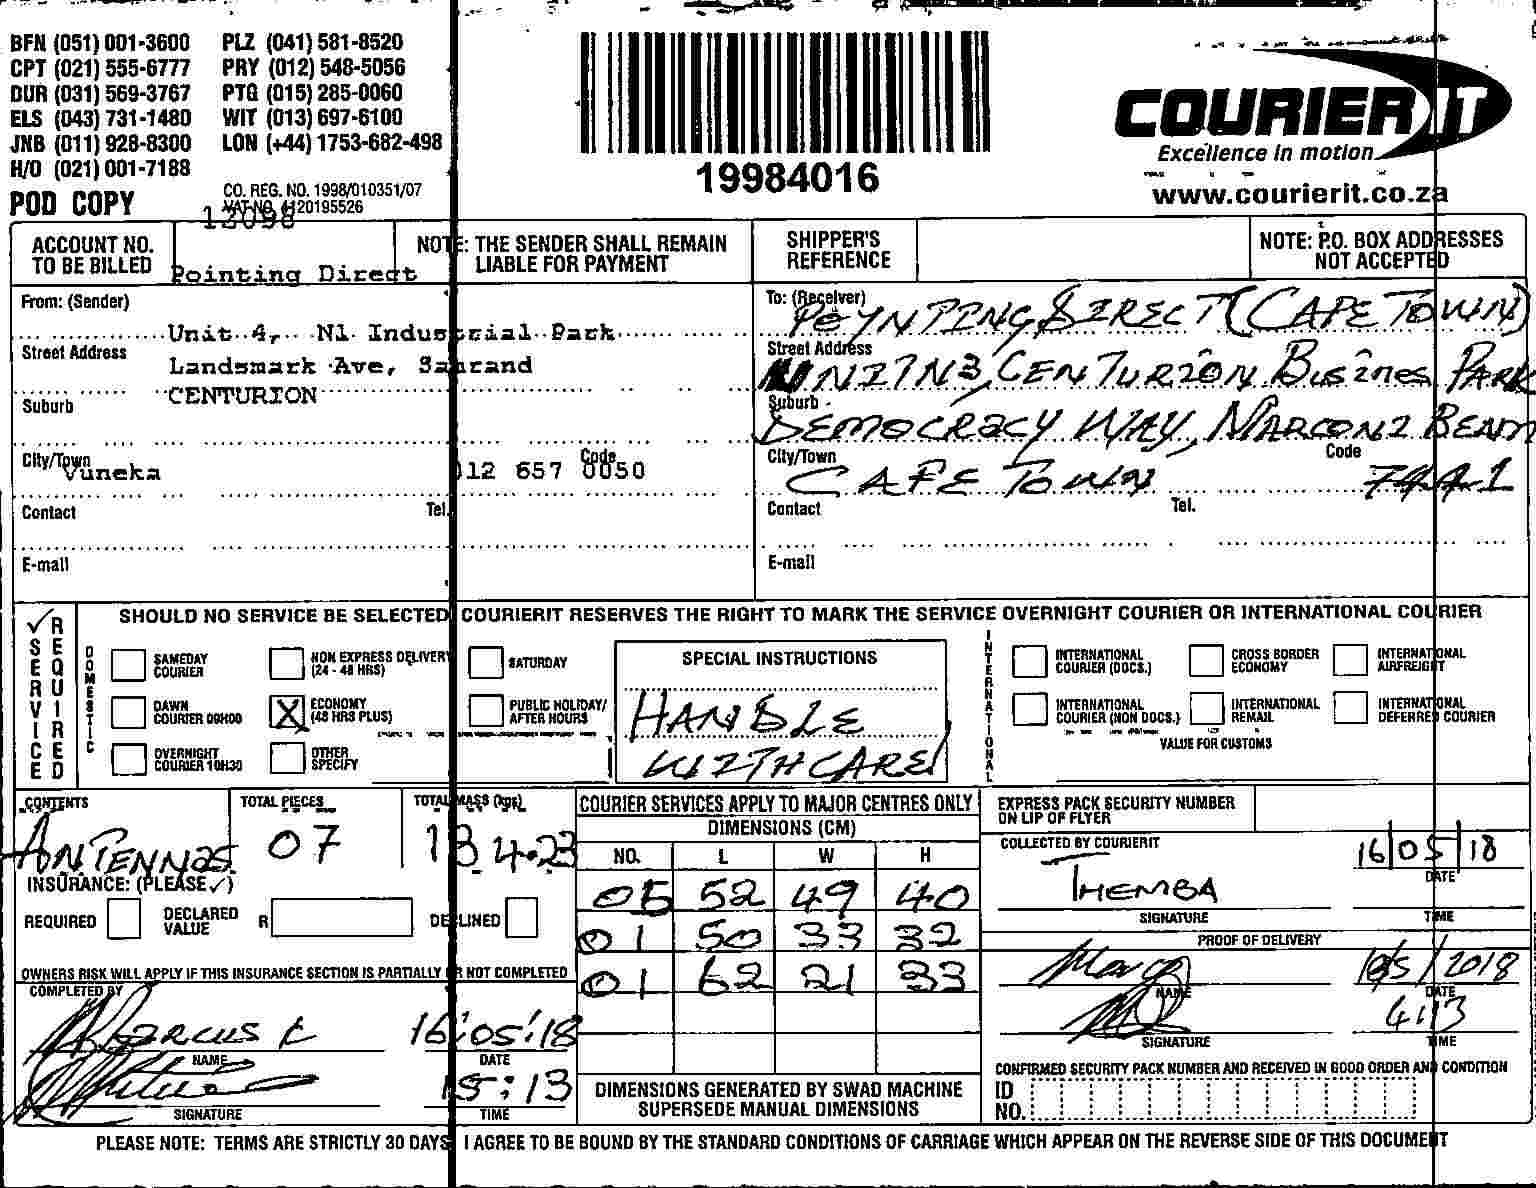 BFN (051) 001-3600 PLZ (041) 581-8520
CPT (021) 555-6777 PRY (012) 548-5056
DUR (031) 569-3767 PTG (015) 285-0060
ELS (043) 731-1480 WIT (013) 697-6100
JNB (011) 928-8300 LON (+44) 1753-682-498
H/O (021) 001-7188
POD COPY
CO. REG. NO. 1998/010351/07
VAT NO. 4120195526
12098
19984016
COURIER IT
Excellence in motion
www.courierit.co.za
ACCOUNT NO.
TO BE BILLED
Pointing Direct
NOTE: THE SENDER SHALL REMAIN
LIABLE FOR PAYMENT
SHIPPER'S
REFERENCE
NOTE: P.O. BOX ADDRESSES
NOT ACCEPTED
From: (Sender)
Unit 4, N1 Industrial Park
Street Address
Landsmark Ave, Samrand
CENTURION
Suburb
City/Town
Vuneka
Code
012 657 0050
Contact Tel.
E-mail
To: (Receiver)
POYNTING DIRECT (CAPE TOWN)
Street Address
UNIT N3, CENTURION BUSINES PARK
Suburb
DEMOCRACY WAY, MARCONI BEAM
City/Town
CAPE TOWN
Code
7441
Contact Tel.
E-mail
SERVICE REQUIRED
SHOULD NO SERVICE BE SELECTED, COURIERIT RESERVES THE RIGHT TO MARK THE SERVICE OVERNIGHT COURIER OR INTERNATIONAL COURIER
DOMESTIC
SAMEDAY
COURIER
NON EXPRESS DELIVERY
(24 - 48 HRS)
SATURDAY
DAWN
COURIER 09H00
X ECONOMY
(48 HRS PLUS)
PUBLIC HOLIDAY/
AFTER HOURS
OVERNIGHT
COURIER 10H30
OTHER
SPECIFY
SPECIAL INSTRUCTIONS
HANDLE
WITH CARE!
INTERNATIONAL
INTERNATIONAL
COURIER (DOCS.)
CROSS BORDER
ECONOMY
INTERNATIONAL
AIRFREIGHT
INTERNATIONAL
COURIER (NON DOCS.)
INTERNATIONAL
REMAIL
INTERNATIONAL
DEFERRED COURIER
VALUE FOR CUSTOMS
CONTENTS
ANTENNAS
TOTAL PIECES
07
TOTAL MASS (kgs)
134.23
INSURANCE: (PLEASE ✓)
REQUIRED
DECLARED
VALUE
R
DECLINED
OWNERS RISK WILL APPLY IF THIS INSURANCE SECTION IS PARTIALLY OR NOT COMPLETED
COMPLETED BY
MARCUS K
NAME
16:05:18
DATE
SIGNATURE
15:13
TIME
COURIER SERVICES APPLY TO MAJOR CENTRES ONLY
DIMENSIONS (CM)
NO. L W H
05 52 49 40
01 50 33 32
01 62 21 33
DIMENSIONS GENERATED BY SWAD MACHINE
SUPERSEDE MANUAL DIMENSIONS
EXPRESS PACK SECURITY NUMBER
ON LIP OF FLYER
COLLECTED BY COURIERIT
THEMBA
SIGNATURE
16/05/18
DATE
TIME
PROOF OF DELIVERY
NAME
DATE
SIGNATURE
TIME
CONFIRMED SECURITY PACK NUMBER AND RECEIVED IN GOOD ORDER AND CONDITION
ID
NO.
PLEASE NOTE: TERMS ARE STRICTLY 30 DAYS. I AGREE TO BE BOUND BY THE STANDARD CONDITIONS OF CARRIAGE WHICH APPEAR ON THE REVERSE SIDE OF THIS DOCUMENT